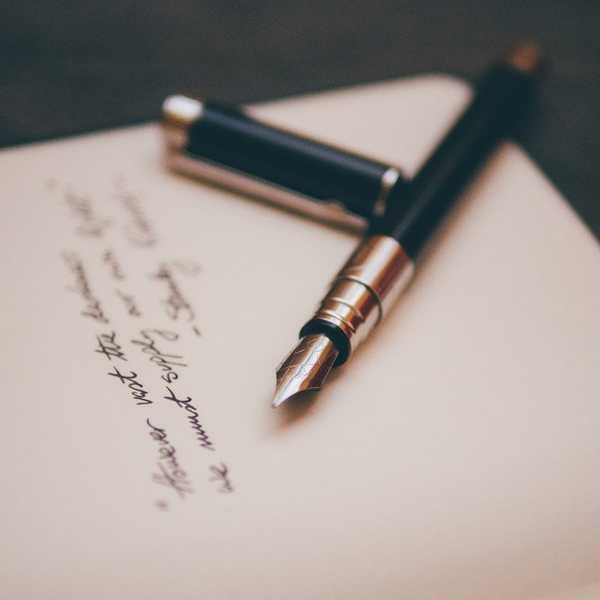 "However vast the darkness
we must supply our own light"
- Stanley Kubrick